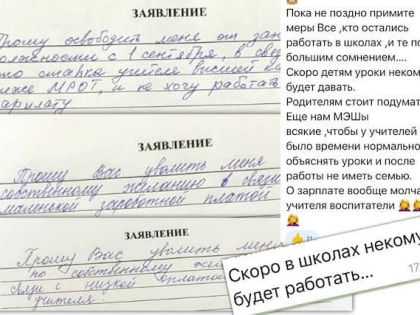 ЗАЯВЛЕНИЕ
Прошу освободить меня от зан
должности с 1 сентября, в свя
что ставка учителя высшей ка
ниже МРОТ, и не хочу работать
зарплату
ЗАЯВЛЕНИЕ
Прошу Вас уволить меня
собственному желанию в связи
маленькой заработной платой
ЗАЯВЛЕНИЕ
Прошу Вас уволить меня
по собственному жел
связи с низкой оплатой
учителя
Пока не поздно примите
меры Все ,кто остались
работать в школах ,и те по
большим сомнением....
Скоро детям уроки некому
будет давать.
Родителям стоит подумат
Еще нам МЭШы
всякие ,чтобы у учителей
было времени нормально
объяснять уроки и после
работы не иметь семью.
О зарплате вообще молча
учителя воспитатели
11
Скоро в школах некому
будет работать...
17